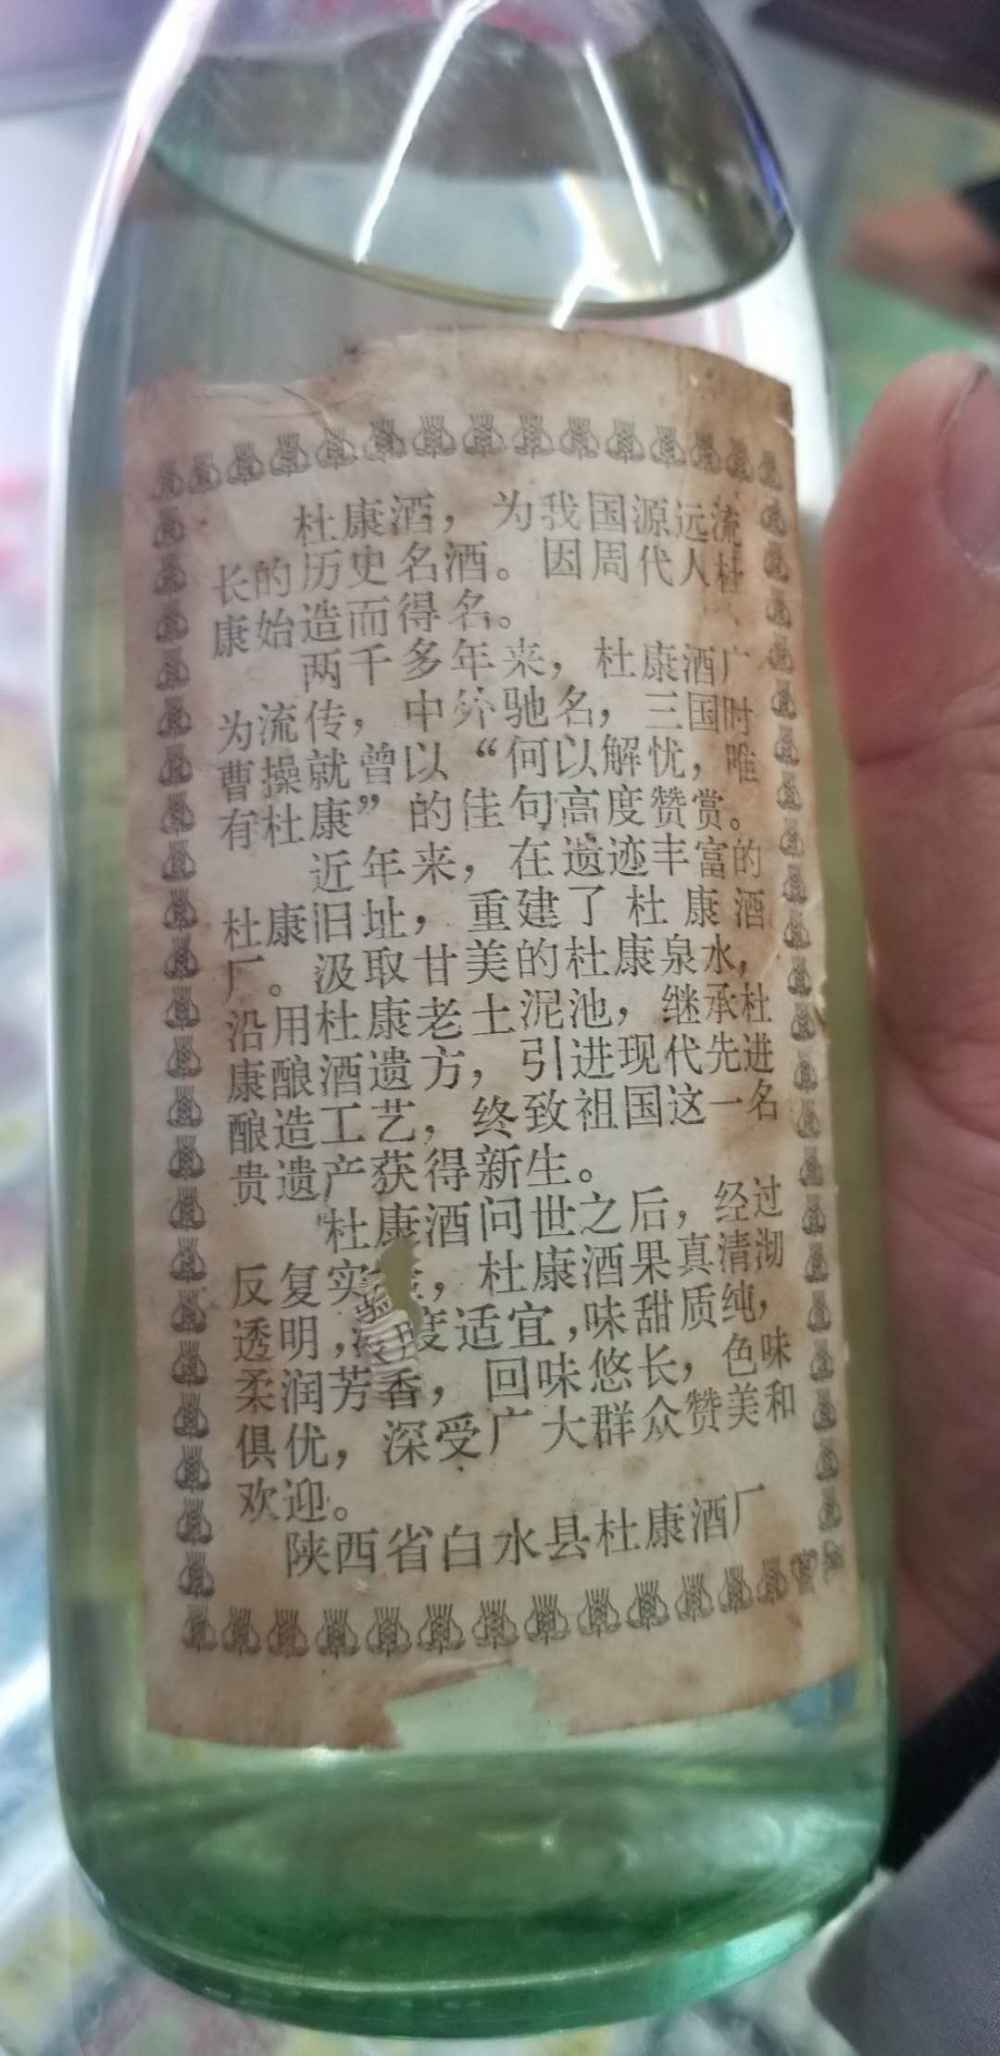 杜康酒，为我国源远流
长的历史名酒。因周代人杜
康始造而得名。
两千多年来，杜康酒广
为流传，中外驰名，三国时
曹操就曾以“何以解忧，唯
有杜康”的佳句高度赞赏。
近年来，在遗迹丰富的
杜康旧址，重建了杜康酒
厂。汲取甘美的杜康泉水，
沿用杜康老土泥池，继承杜
康酿酒遗方，引进现代先进
酿造工艺，终致祖国这一名
贵遗产获得新生。
杜康酒问世之后，经过
反复实，杜康酒果真清沏
透明，度适宜，味甜质纯，
柔润芳香，回味悠长，色味
俱优，深受广大群众赞美和
欢迎。
陕西省白水县杜康酒厂